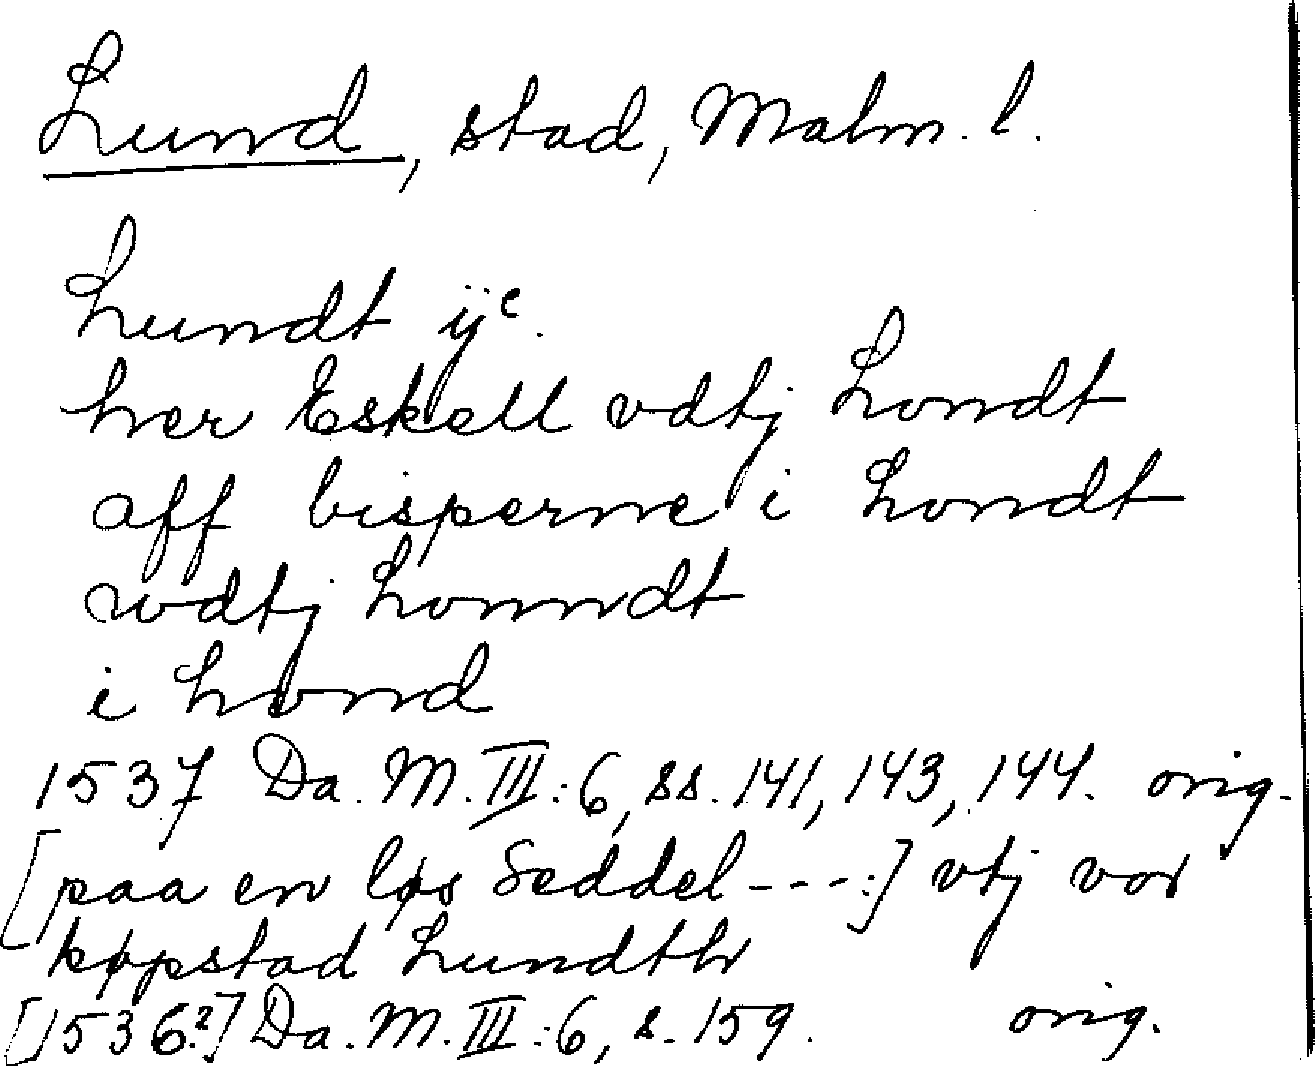 Lund, stad, Malm. l.
Lundt ÿᶜ.
her Eskell vdtj Londt
aff bisperne i Londt
wdtj Lonndt
i Lond
1537 Da. M. III:6, ss. 141, 143, 144. orig.
[paa en løs Seddel ---:] vtj vor
køpstad Lundth
[1536?] Da. M. III:6, s. 159. orig.